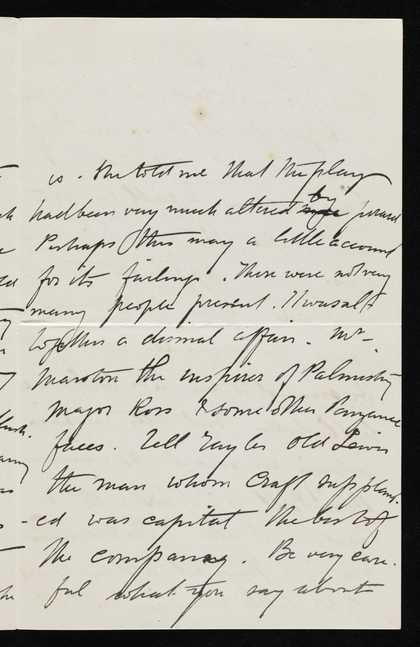 is. She told me that the play
had been very much altered by
Perhaps this may a little account
for its failings. There were not very
many people present. It was al-
together a dismal affair. Mr-
the inspirer of Palmistry
Major Ross & some other Penzance
faces. Tell Tayler Old Lewis
the man whom Craft supplant-
-ed was capital the best of
the company. Be very care-
ful what you say about